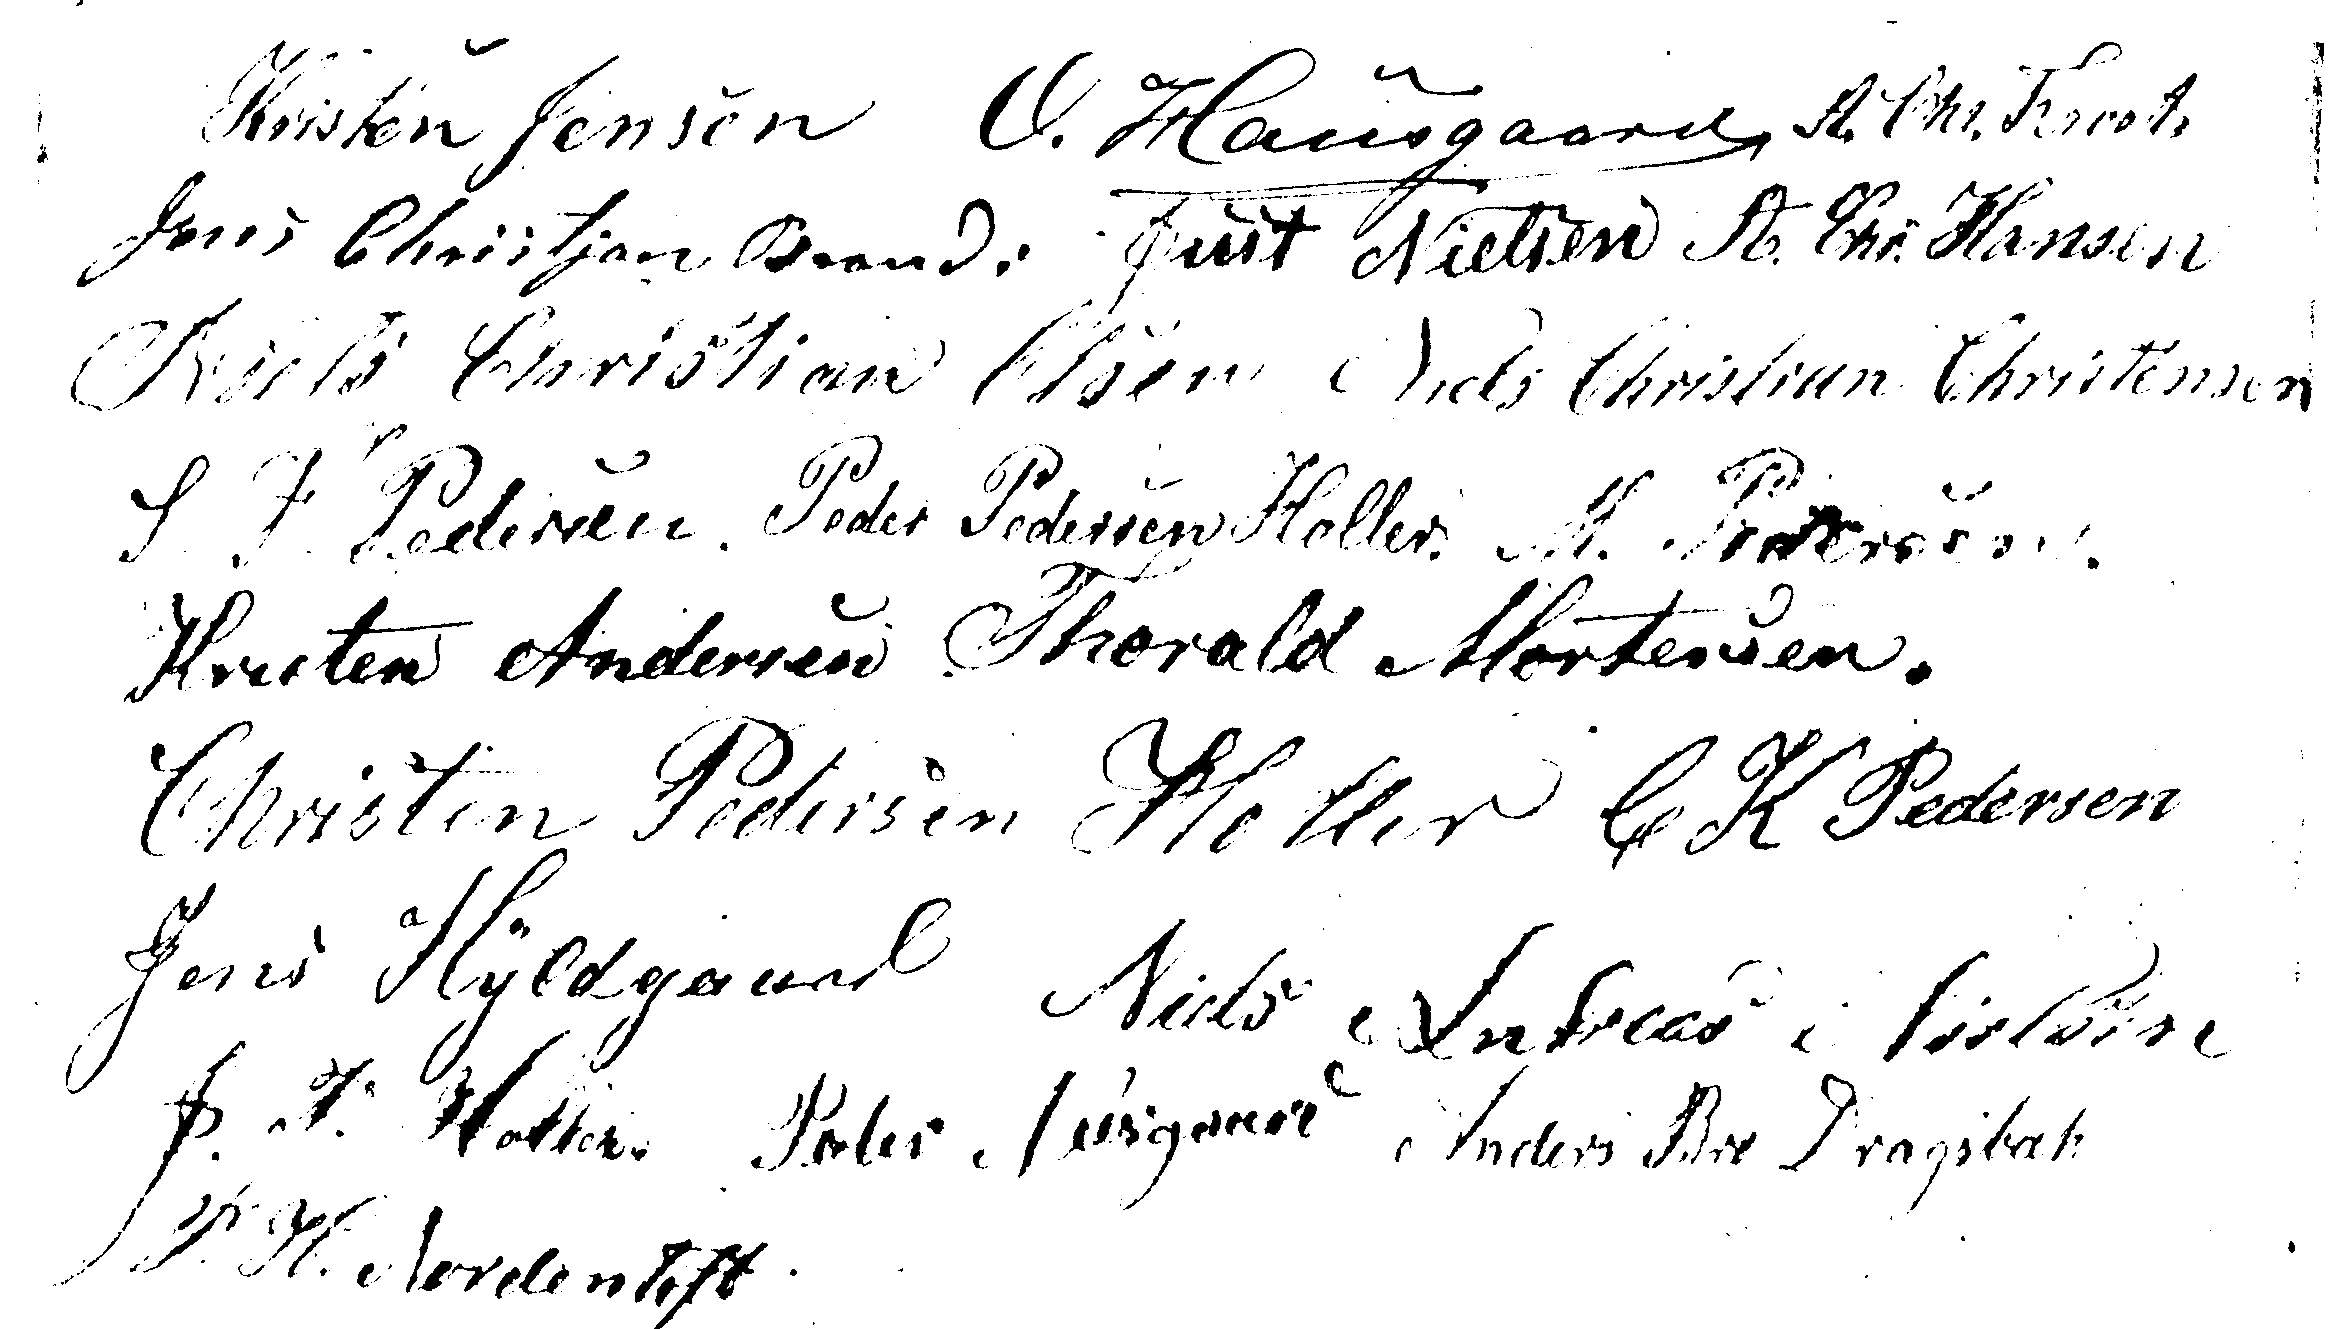 Kristen Jensen O. Hausgaard, A. Chr. Kroot.
Jens Christjan Brand. Just Nielsen A. Chr. Hansen
Niels Christian Olsen Niels Christian Christensen
S. F. Pedersen. Peder Pedersen Holler. M. Pedersen.
Kristen Andersen Thorald Mortensen.
Christen Pedersen Holler C K Pedersen
Jens Hyldgaard Niels Andreas Nielsen
J. N. Holler. Peder Nusgaard Anders Bro Dragsbæk
H. Nordentoft.